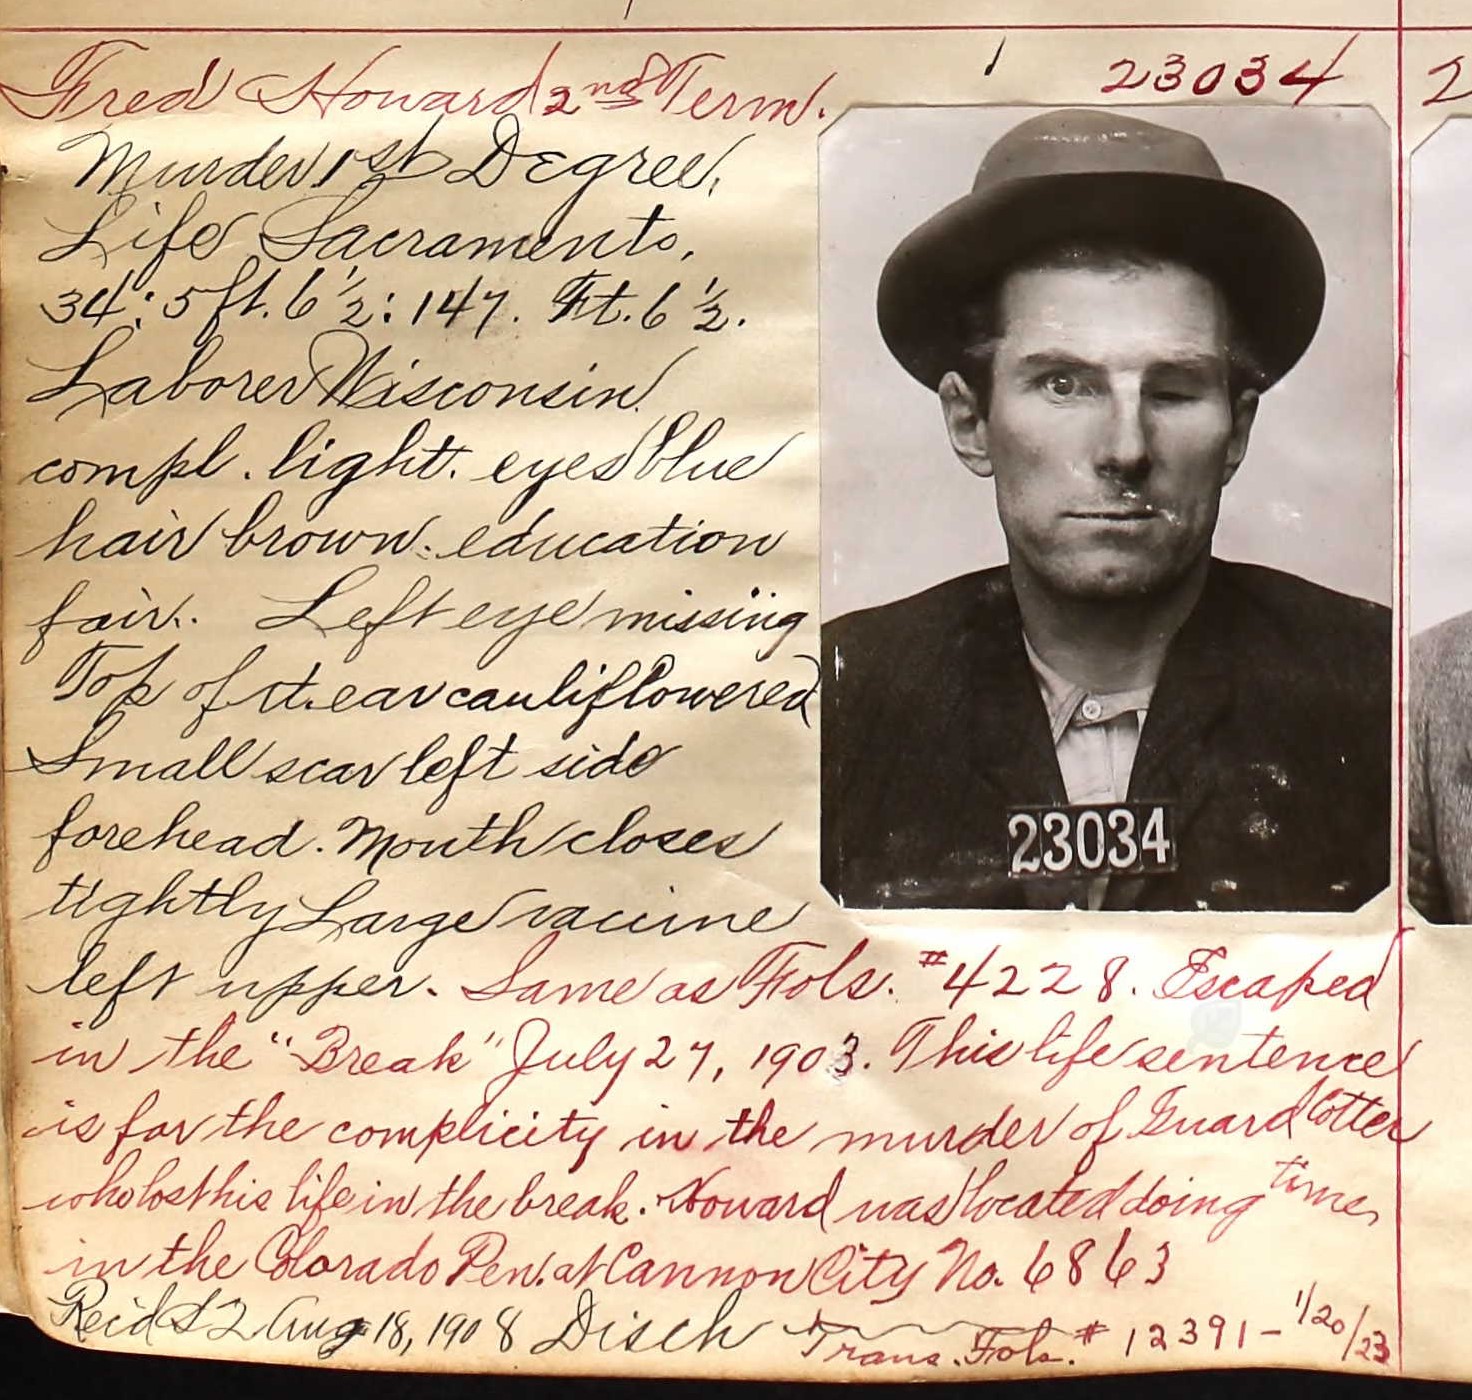 Fred Howard 2nd Term. 23034
Murder 1st Degree,
Life Sacramento,
34: 5 ft. 6 1/2: 147. Ft. 6 1/2.
Laborer Wisconsin.
compl. light. eyes blue
hair brown. education
fair. Left eye missing
Top of rt. ear cauliflowered
Small scar left side
forehead. Mouth closes
tightly Large vaccine
left upper. Same as Fols. #4228. Escaped
in the "Break" July 27, 1903. This life sentence
is for the complicity in the murder of Guard Cotter
who lost his life in the break. Howard was located doing time
in the Colorado Pen. at Cannon City No. 6863
Aug 18, 1908 Disch Trans. Fols. # 12391 - 1/20/23
23034